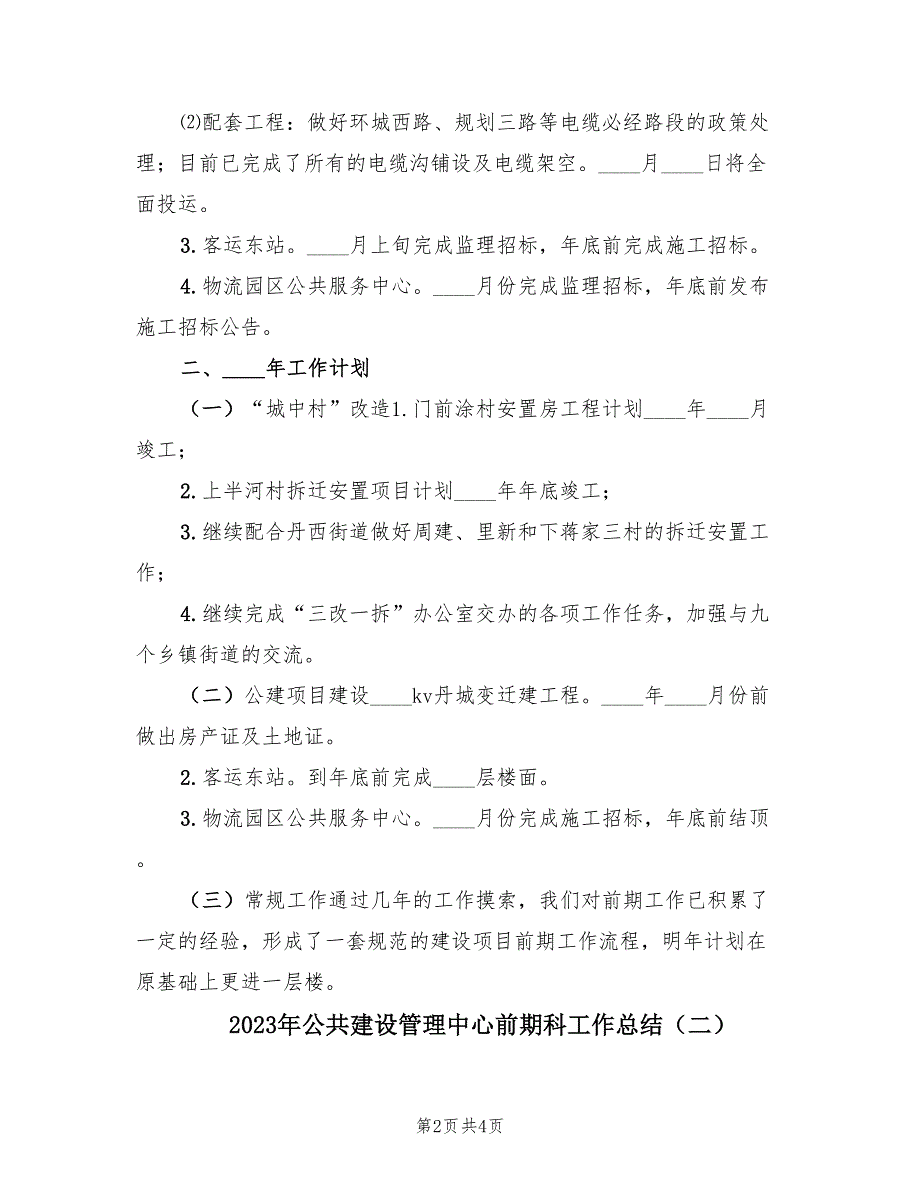 ⑵配套工程：做好环城西路、规划三路等电缆必经路段的政策处
理；目前已完成了所有的电缆沟铺设及电缆架空。____月____日将全
面投运。
3.客运东站。____月上旬完成监理招标，年底前完成施工招标。
4.物流园区公共服务中心。____月份完成监理招标，年底前发布
施工招标公告。
二、____年工作计划
（一）“城中村”改造1.门前涂村安置房工程计划____年____月
竣工；
2.上半河村拆迁安置项目计划____年年底竣工；
3.继续配合丹西街道做好周建、里新和下蒋家三村的拆迁安置工
作；
4.继续完成“三改一拆”办公室交办的各项工作任务，加强与九
个乡镇街道的交流。
（二）公建项目建设____kv丹城变迁建工程。____年____月份前
做出房产证及土地证。
2.客运东站。到年底前完成____层楼面。
3.物流园区公共服务中心。____月份完成施工招标，年底前结顶
。
（三）常规工作通过几年的工作摸索，我们对前期工作已积累了
一定的经验，形成了一套规范的建设项目前期工作流程，明年计划在
原基础上更进一层楼。
2023年公共建设管理中心前期科工作总结（二）
第2页共4页